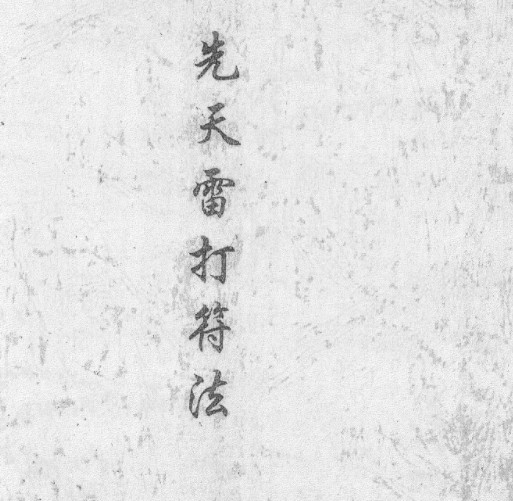 先天雷打符法